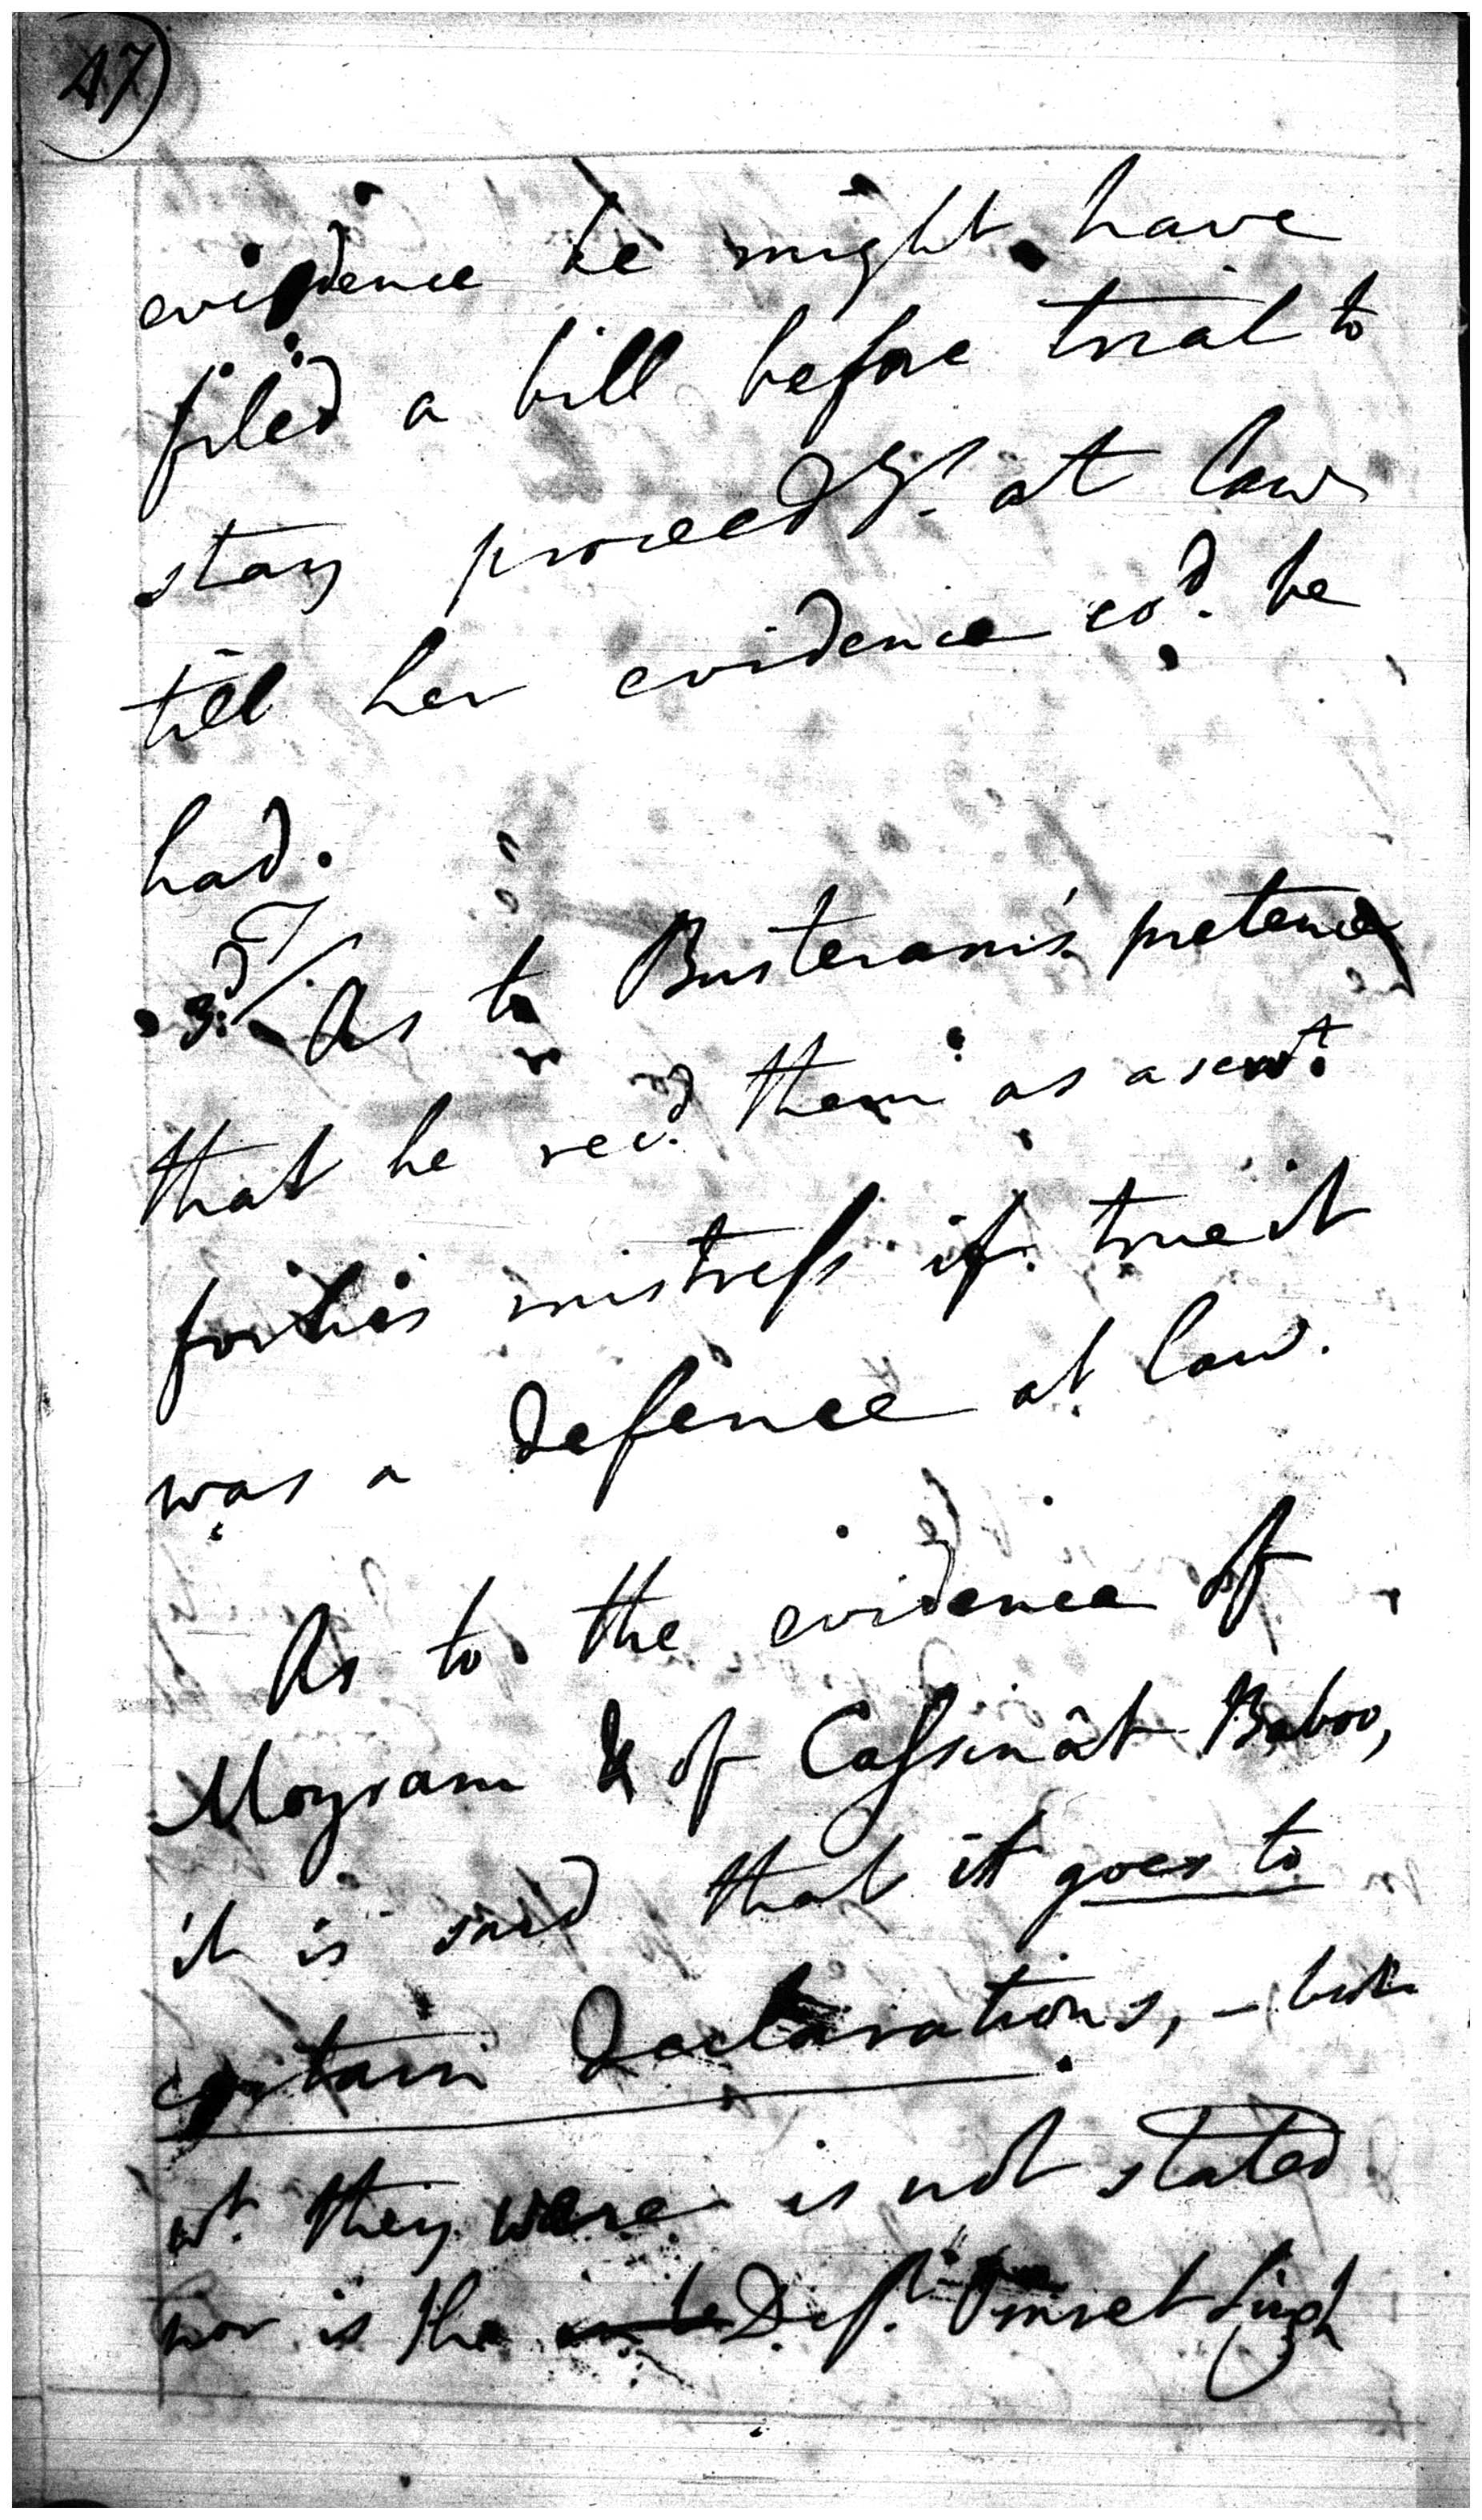 47)
evidence he might have
filed a bill before trial to
stay proceedgs. at law
till her evidence cod. be
had.
3d./ As to Busteram's pretence
that he recd. them as a servt.
for his mistress if true it
was a defence at law.
As to the evidence of
Moyram & of Cassinât Baboo,
it is said that it goes to
certain declarations, – but
wt. they were is not stated
nor is the Deft. Omret Singh